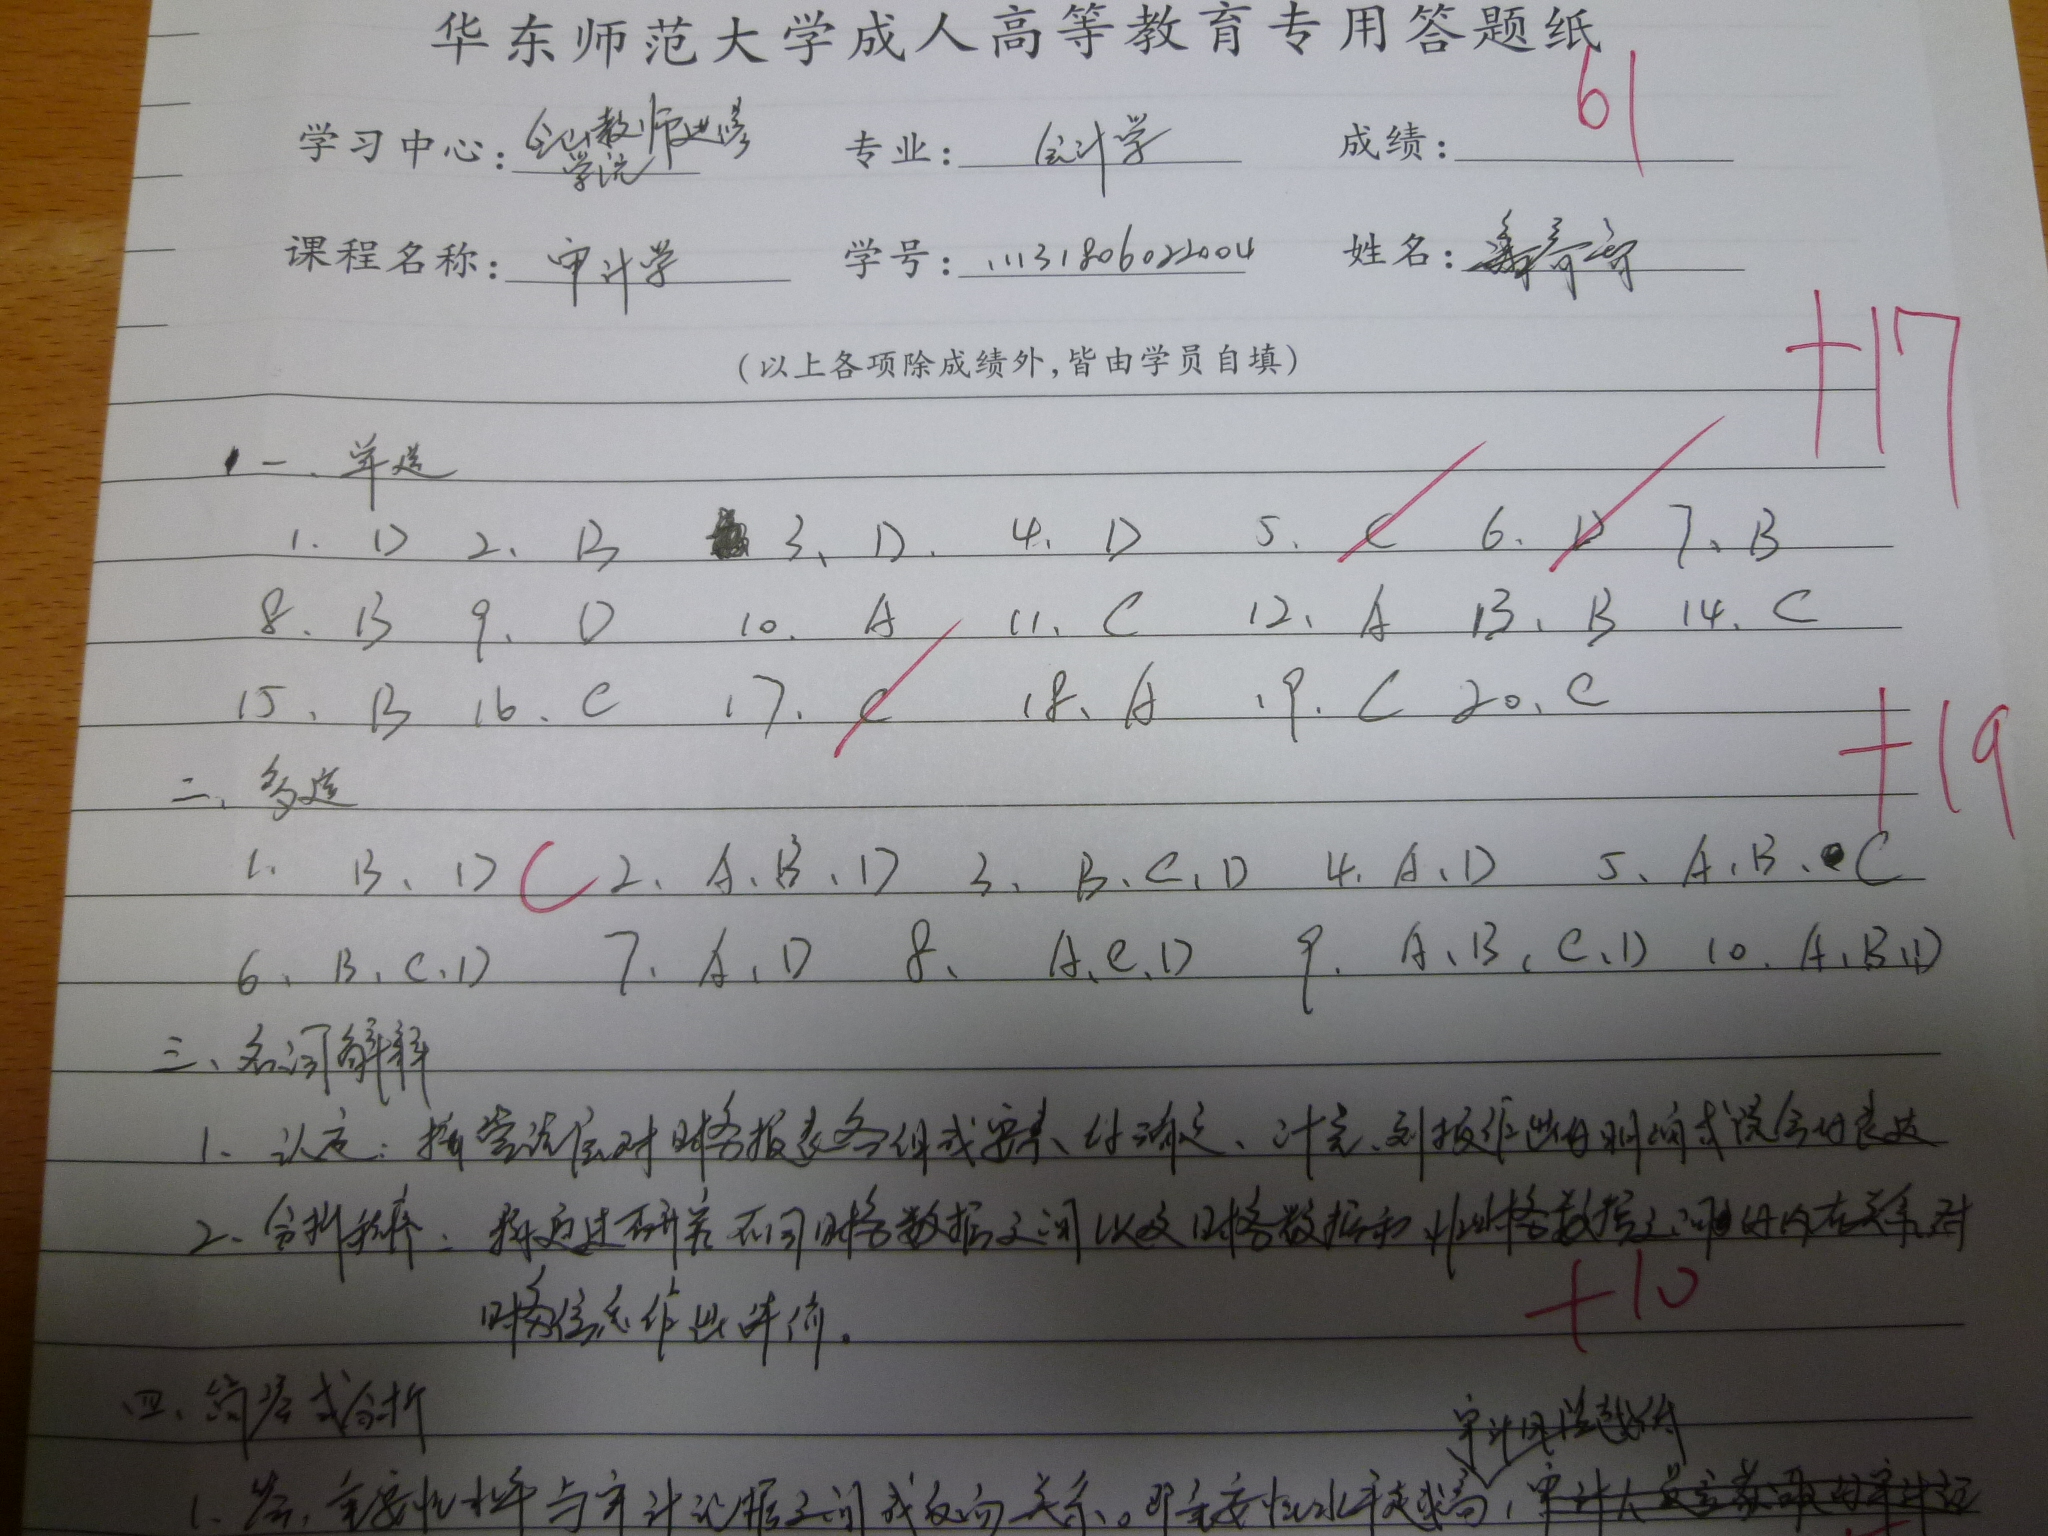 华东师范大学成人高等教育专用答题纸
61
学习中心: 教师进修学院 专业: 会计学 成绩:
课程名称: 审计学 学号: 11131806022004 姓名:
(以上各项除成绩外,皆由学员自填)
+17
一、单选
1. D 2、B 3、D. 4. D 5. C 6. D 7、B
8. B 9. D 10. A 11. C 12、A 13、B 14. C
15、B 16. C 17. C 18、A 19. C 20、C
+19
二、多选
1. B、D C 2、A、B、D 3、B、C、D 4. A、D 5、A、B、C
6、B、C、D 7、A、D 8、A、C、D 9. A、B、C、D 10. A、B、D
三、名词解释
1、认定:指管理层对财务报表各组成要素、的确定、计量、列报作出的明确或混合的表达
2、分析程序:指通过研究不同财务数据之间以及财务数据和非财务数据之间的内在关系,对
财务信息作出评价。
+10
四、简答或分析
审计风险越低
1、答:重要性水平与审计证据之间成反向关系。即重要性水平越高,